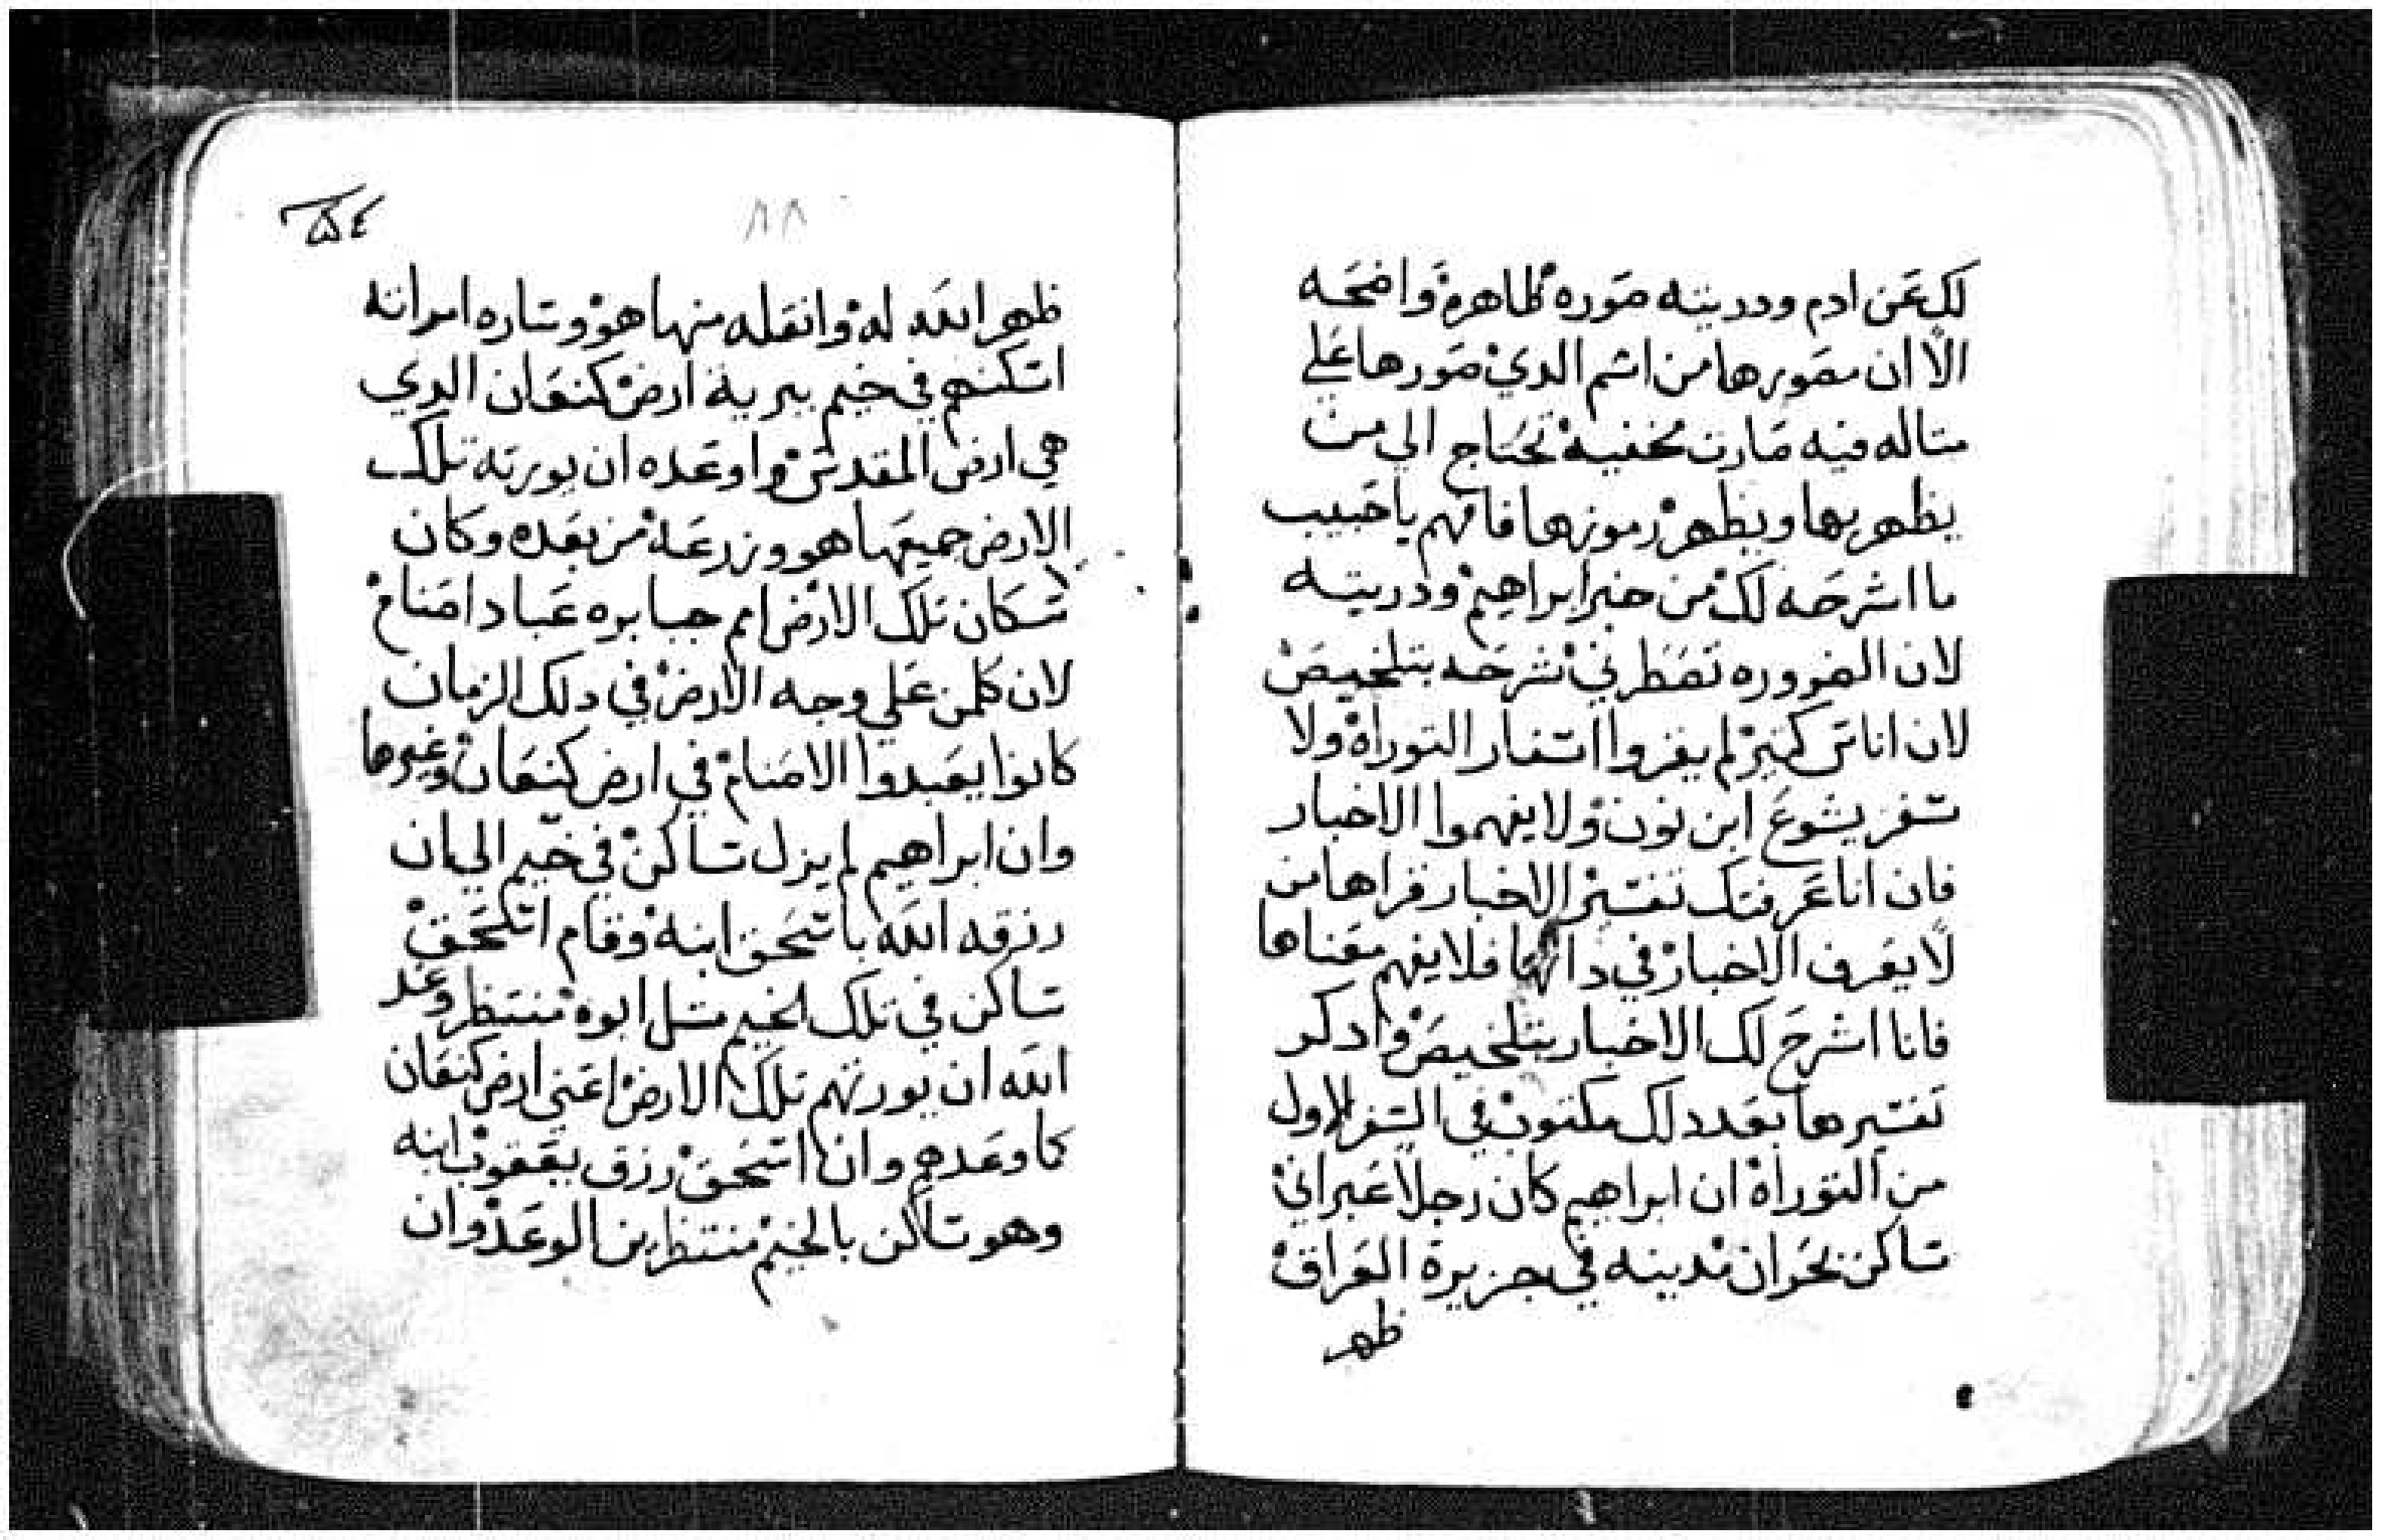 لك عن ادم ودريته صوره ظاهرة واضحه
الا ان صورها من اسم الدي صورها علي
متاله فيه صارت مخفيه تحتاج الي من
يظهر بها ويظهر رموزها فافهم يا حبيب
ما اشرحه لك من خبر ابراهيم ودريته
لان الضروره تضطرني نشرحه بتلخيص
لان اناس كتير لم يقروا اسفار التوراة ولا
سفر يشوع ابن نون ولا يفهموا الاخبار
فان انا عرفتك تفسير الاخبار فقراها من
لا يعرف الاخبار في داتها فلا يفهم معناها
فانا اشرح لك الاخبار بتلخيص وادكر
تفسيرها بعد دلك مكتوب في السفر الاول
من التوراة ان ابراهيم كان رجلا عبراني
ساكن بحران مدينه في جزيرة العراق
ظهر
٨٨
ظهر الله له وانقله منها هو وساره امراته
اسكنهم في خيم ببرية ارض كنعان الدي
هي ارض المقدس واوعده ان يورته تلك
الارض جميعها هو وزرعه من بعده وكان
سكان تلك الارض امم جبابره عباد اصنام
لان كلمن علي وجه الارض في دلك الزمان
كانوا يعبدوا الاصنام في ارض كنعان وغيرها
وان ابراهيم لم يزل ساكن في خيم الي ان
رزقه الله باسحق ابنه وقام اسحق
ساكن في تلك الخيم متل ابوه منتظر وعد
الله ان يورتهم تلك الارض اعني ارض كنعان
كما وعدهم وان اسحق رزق يعقوب ابنه
وهو ساكن بالخيم منتظرين الوعد وان